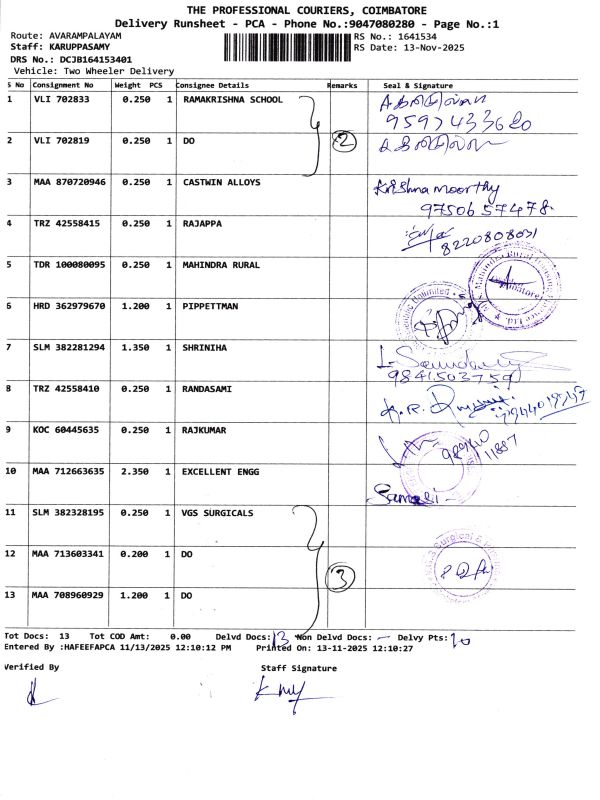 THE PROFESSIONAL COURIERS, COIMBATORE
Delivery Runsheet - PCA - Phone No.:9047080280 - Page No.:1
Route: AVARAMPALAYAM RS No.: 1641534
Staff: KARUPPASAMY RS Date: 13-Nov-2025
DRS No.: DCJB164153401
Vehicle: Two Wheeler Delivery
S No Consignment No Weight PCS Consignee Details Remarks Seal & Signature
1 VLI 702833 0.250 1 RAMAKRISHNA SCHOOL
2 VLI 702819 0.250 1 DO 2
3 MAA 870720946 0.250 1 CASTWIN ALLOYS Krishna moorthy
97506 57478
4 TRZ 42558415 0.250 1 RAJAPPA 8220808031
5 TDR 100080095 0.250 1 MAHINDRA RURAL
6 HRD 362979670 1.200 1 PIPPETTMAN
7 SLM 382281294 1.350 1 SHRINIHA
9841503759
8 TRZ 42558410 0.250 1 RANDASAMI
9 KOC 60445635 0.250 1 RAJKUMAR
10 MAA 712663635 2.350 1 EXCELLENT ENGG
11 SLM 382328195 0.250 1 VGS SURGICALS
12 MAA 713603341 0.200 1 DO
13 MAA 708960929 1.200 1 DO 3
Tot Docs: 13 Tot COD Amt: 0.00 Delvd Docs: 13 Non Delvd Docs: — Delvy Pts: 10
Entered By :HAFEEFAPCA 11/13/2025 12:10:12 PM Printed On: 13-11-2025 12:10:27
Verified By Staff Signature